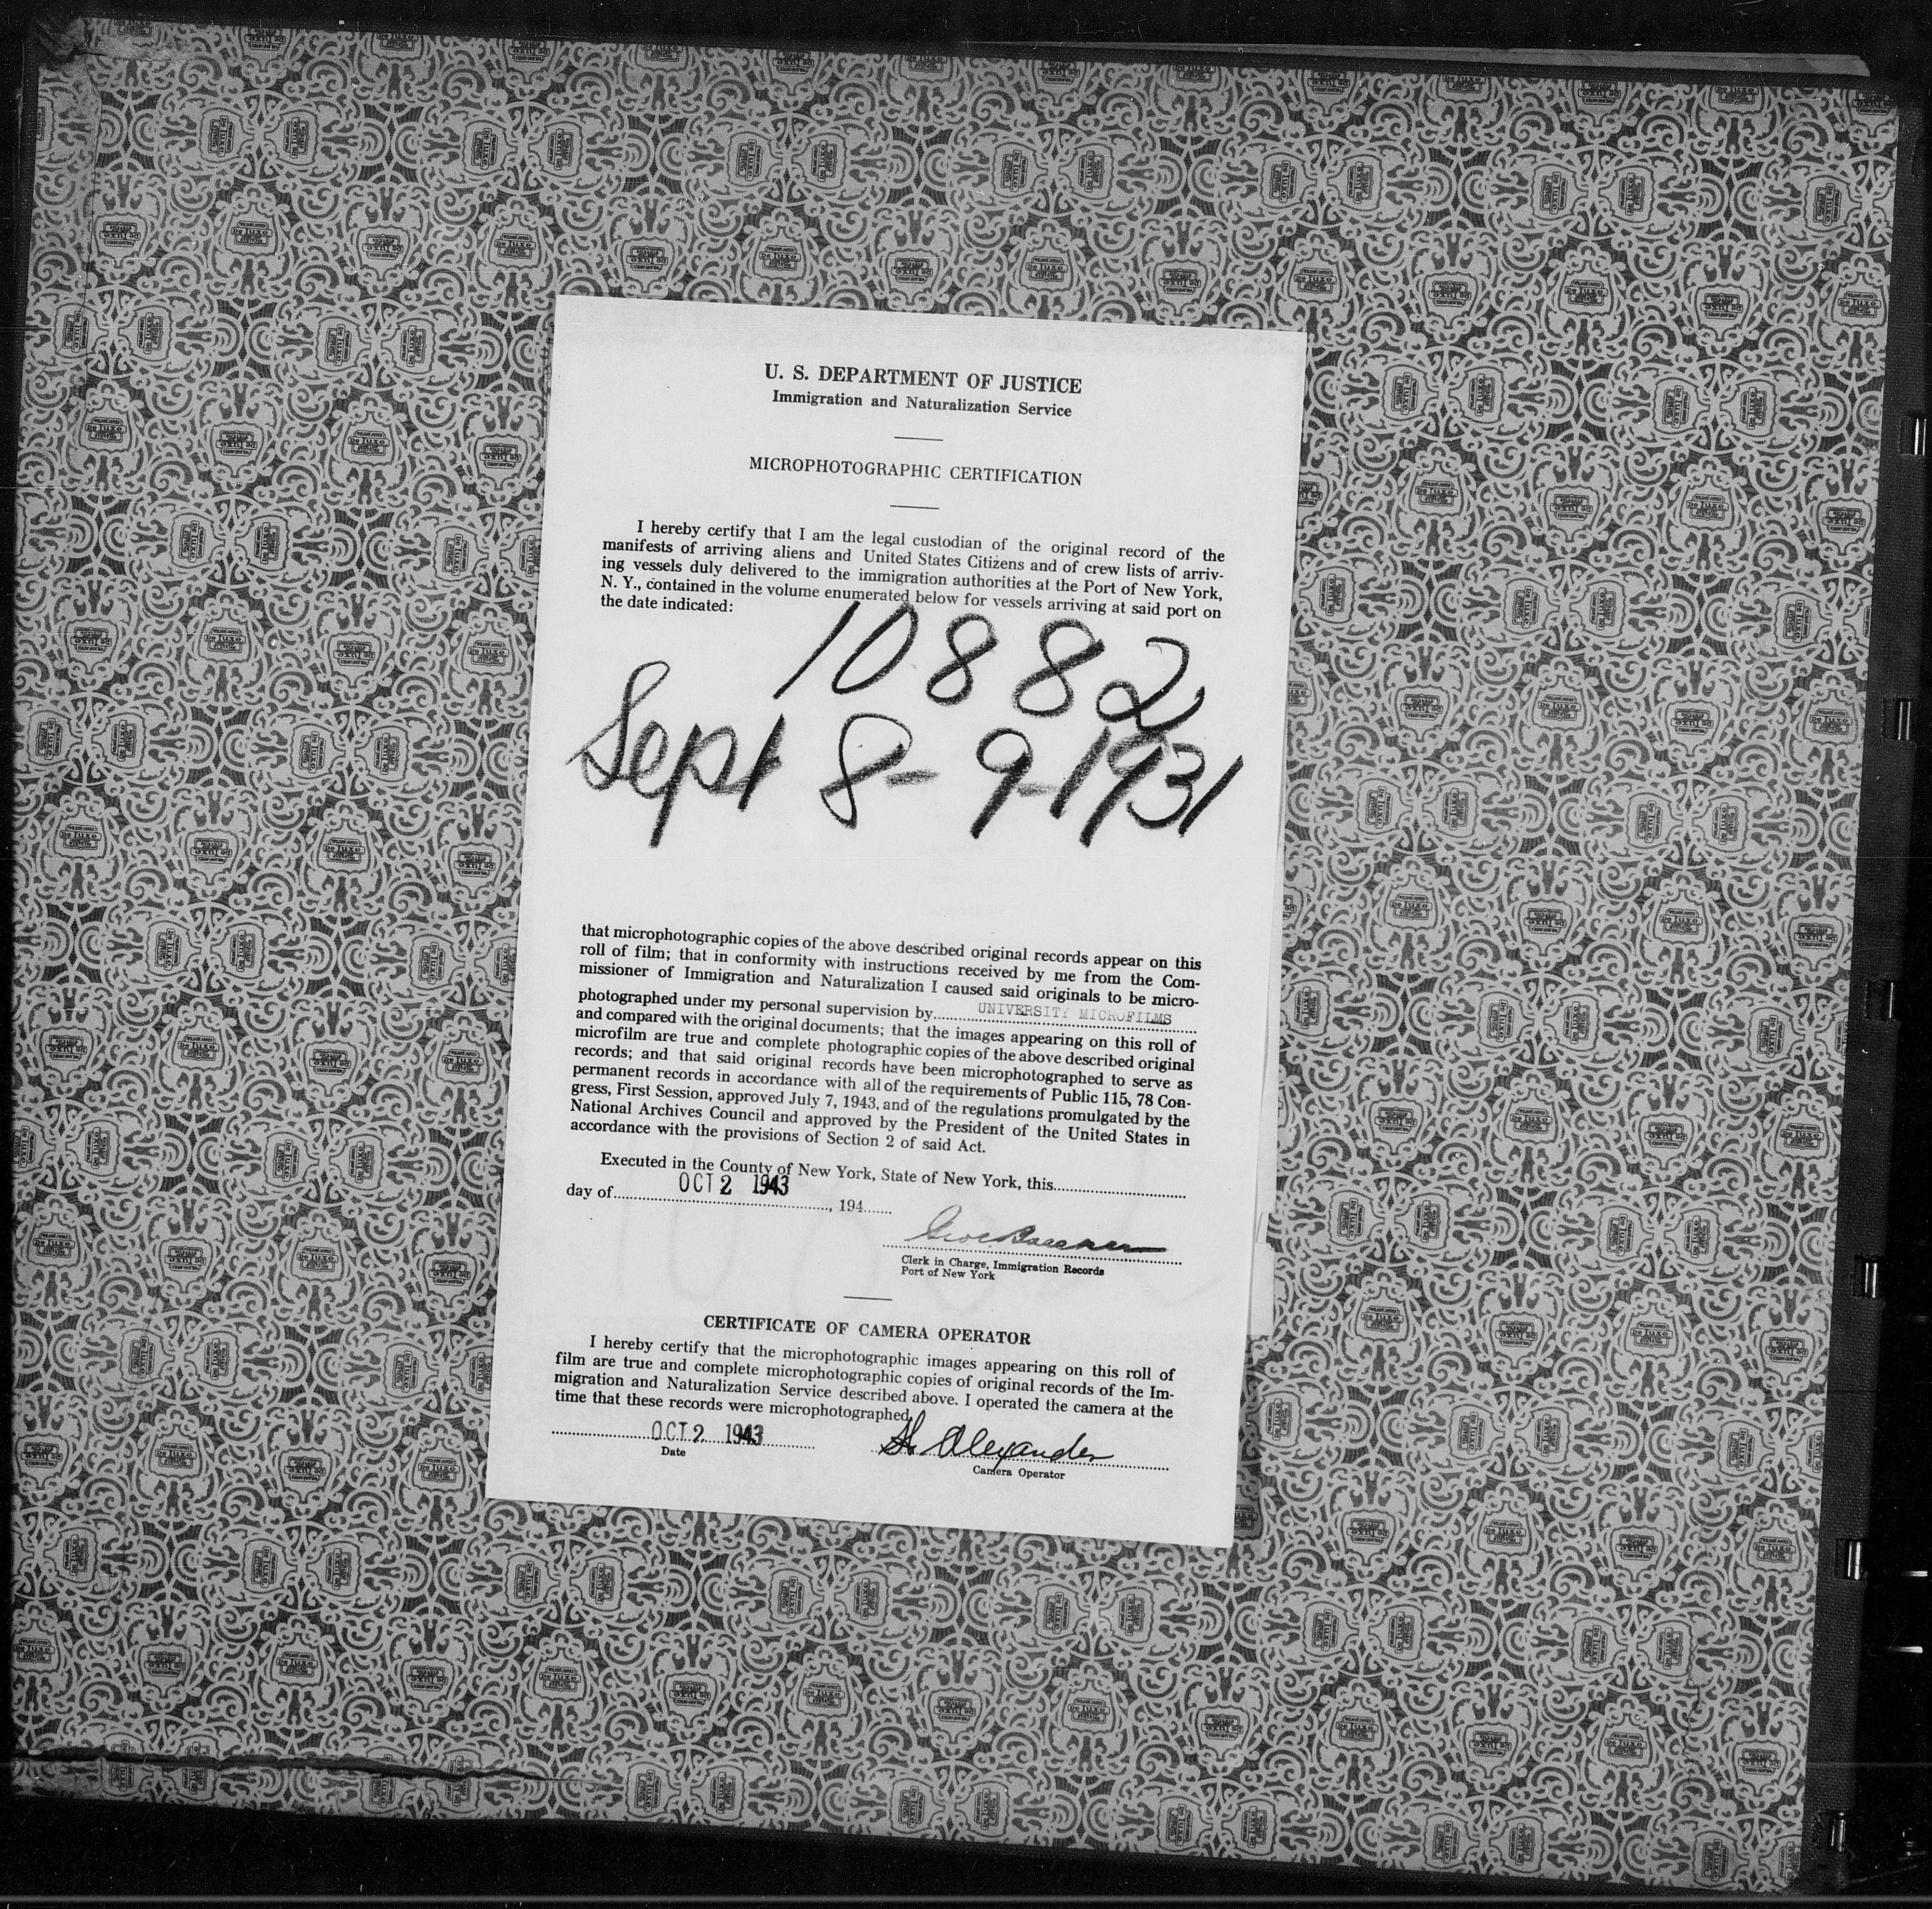 U. S. DEPARTMENT OF JUSTICE
Immigration and Naturalization Service
MICROPHOTOGRAPHIC CERTIFICATION
I hereby certify that I am the legal custodian of the original record of the
manifests of arriving aliens and United States Citizens and of crew lists of arriv-
ing vessels duly delivered to the immigration authorities at the Port of New York,
N. Y., contained in the volume enumerated below for vessels arriving at said port on
the date indicated:
10882
Sept 8-9-1931
that microphotographic copies of the above described original records appear on this
roll of film; that in conformity with instructions received by me from the Com-
missioner of Immigration and Naturalization I caused said originals to be micro-
photographed under my personal supervision by UNIVERSITY MICROFILMS
and compared with the original documents; that the images appearing on this roll of
microfilm are true and complete photographic copies of the above described original
records; and that said original records have been microphotographed to serve as
permanent records in accordance with all of the requirements of Public 115, 78 Con-
gress, First Session, approved July 7, 1943, and of the regulations promulgated by the
National Archives Council and approved by the President of the United States in
accordance with the provisions of Section 2 of said Act.
Executed in the County of New York, State of New York, this
OCT 2 1943
day of, 194
Clerk in Charge, Immigration Records
Port of New York
CERTIFICATE OF CAMERA OPERATOR
I hereby certify that the microphotographic images appearing on this roll of
film are true and complete microphotographic copies of original records of the Im-
migration and Naturalization Service described above. I operated the camera at the
time that these records were microphotographed.
OCT 2 1943 H. Alexander
Date
Camera Operator